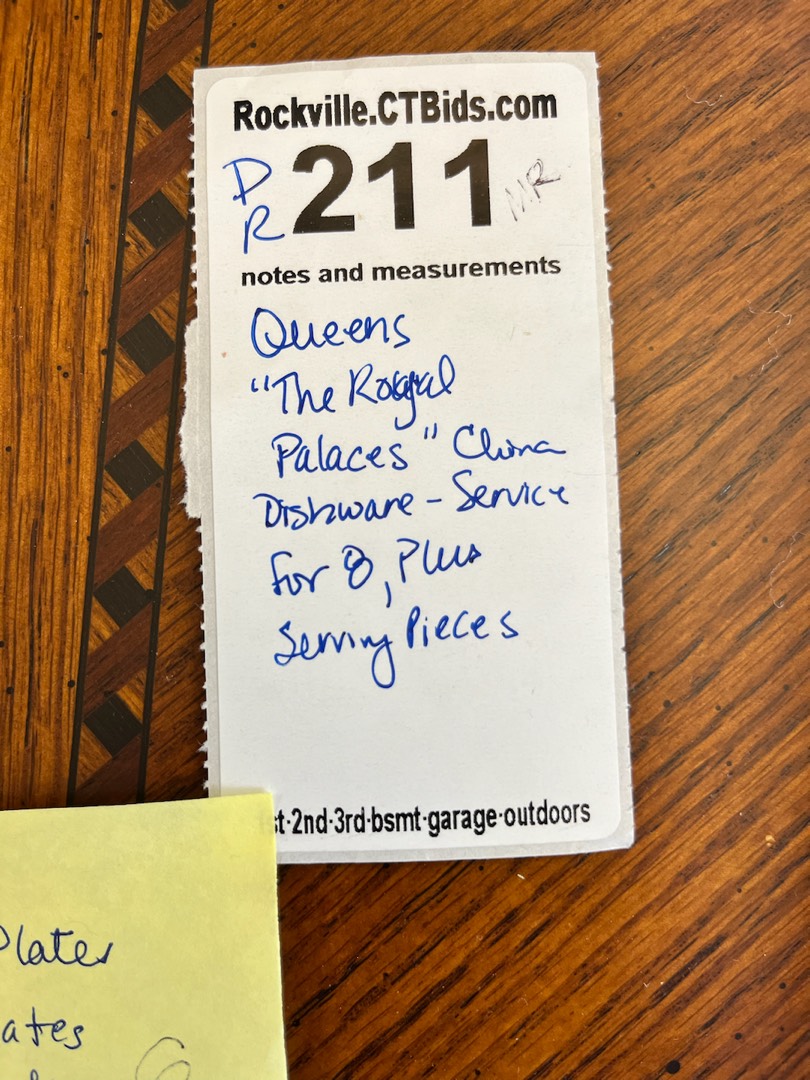 Rockville.CTBids.com
DR 211 MR
notes and measurements
Queens
"The Royal
Palaces" China
Dishware - Service
for 8, Plus
Serving Pieces
st·2nd·3rd·bsmt·garage·outdoors
Plates
ates